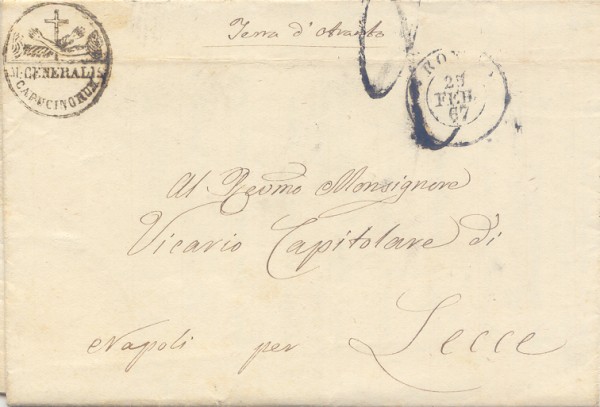 Terra d'Otranto
M. GENERALIS
CAPUCINORUM
ROMA
25
FEB.
67
Al Revmo Monsignore
Vicario Capitolare di
Napoli per Lecce